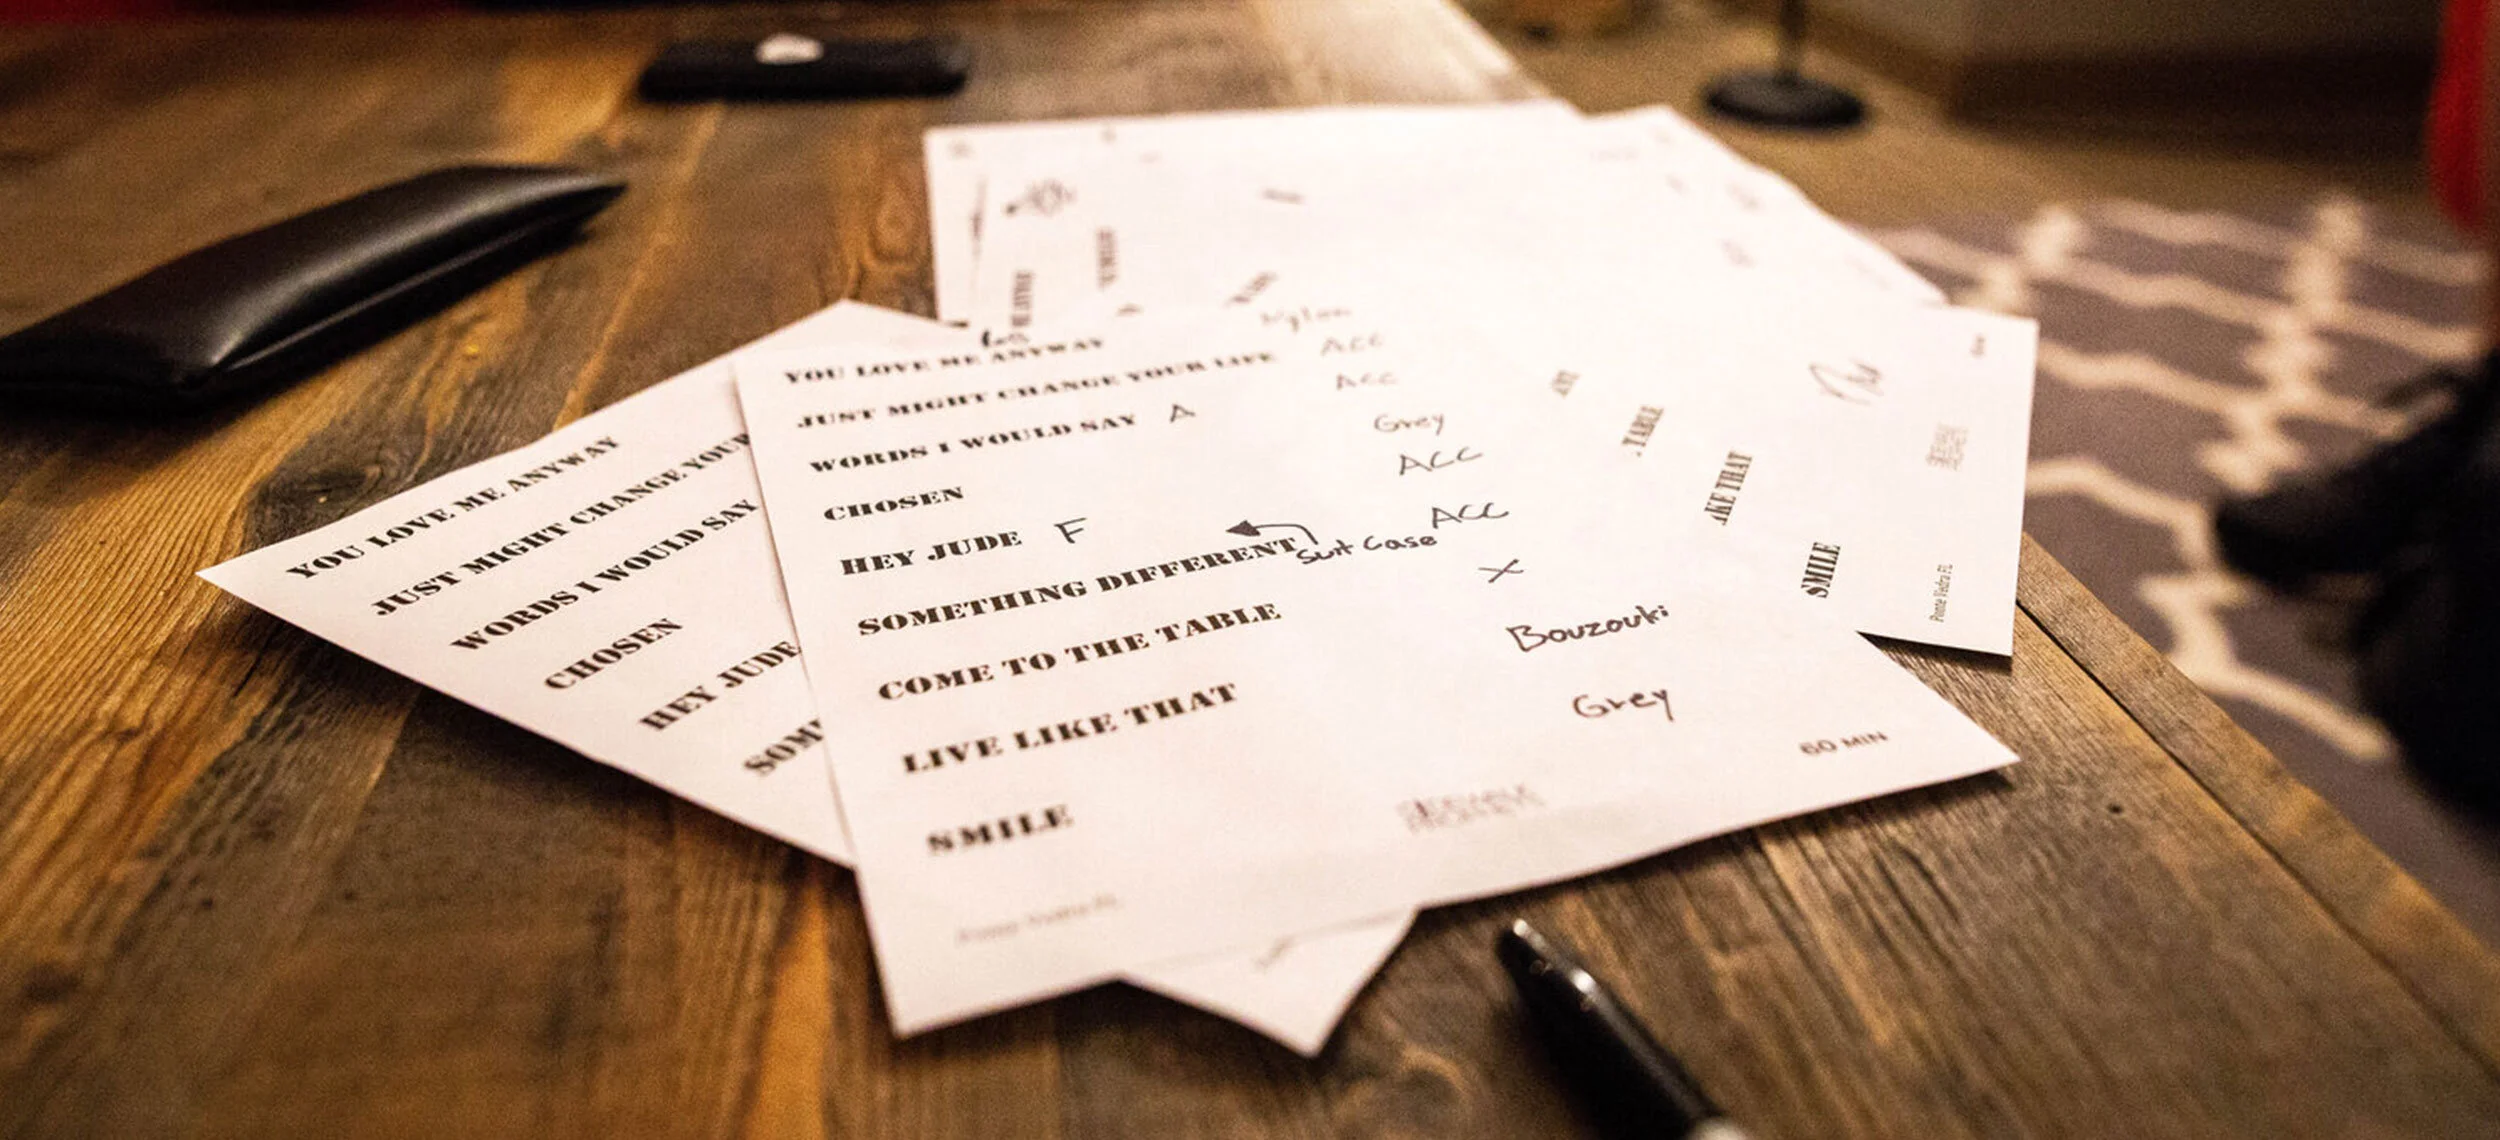 YOU LOVE ME ANYWAY
JUST MIGHT CHANGE YOUR
WORDS I WOULD SAY
CHOSEN
HEY JUDE
YOU LOVE ME ANYWAY Nylon
JUST MIGHT CHANGE YOUR LIFE Acc
WORDS I WOULD SAY A Acc
CHOSEN Grey
HEY JUDE F Acc
SOMETHING DIFFERENT suit case Acc
COME TO THE TABLE X
LIVE LIKE THAT Bouzouki
SMILE Grey
60 MIN
Ponte Vedra FL
TABLE
KE THAT
SMILE
Ponte Vedra FL